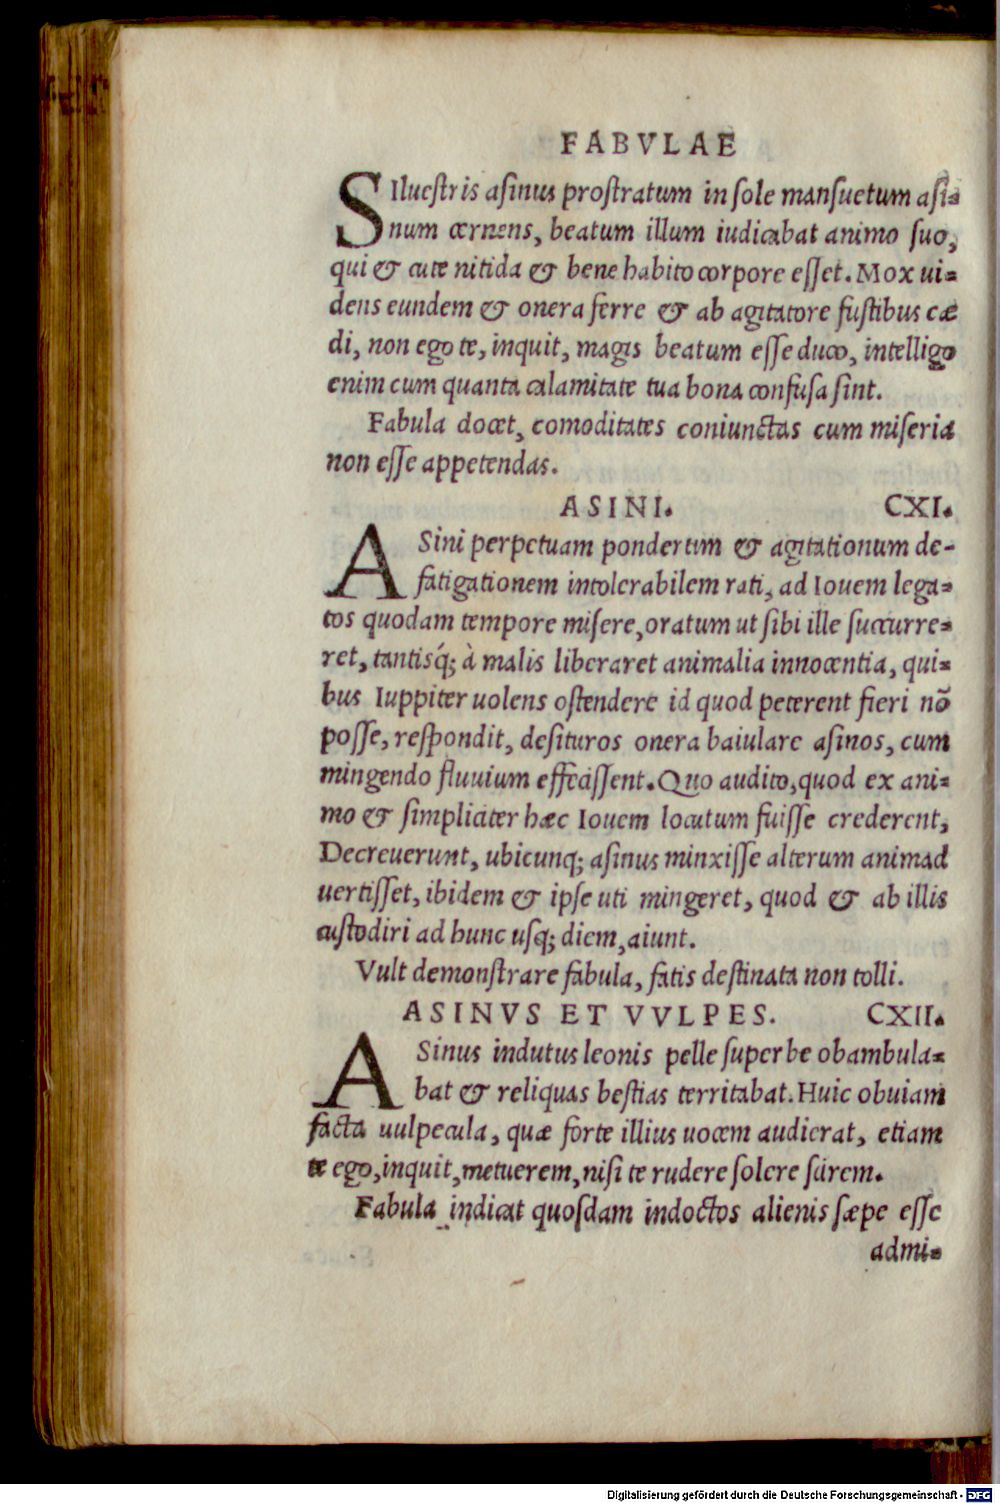 FABVLAE
SIluestris asinus prostratum in sole mansuetum asi=
num cernens, beatum illum iudicabat animo suo,
qui & cute nitida & bene habito corpore esset. Mox ui=
dens eundem & onera ferre & ab agitatore fustibus cæ
di, non ego te, inquit, magis beatum esse duco, intelligo
enim cum quanta calamitate tua bona confusa sint.
Fabula docet, comoditates coniunctas cum miseria
non esse appetendas.
ASINI. CXI.
ASini perpetuam ponderum & agitationum de-
fatigationem intolerabilem rati, ad Iouem lega=
tos quodam tempore misere, oratum ut sibi ille succurre=
ret, tantisq́; à malis liberaret animalia innocentia, qui=
bus Iuppiter uolens ostendere id quod peterent fieri nõ
posse, respondit, desituros onera baiulare asinos, cum
mingendo fluuium effecissent. Quo audito, quod ex ani=
mo & simpliciter hæc Iouem locutum fuisse crederent,
Decreuerunt, ubicunq; asinus minxisse alterum animad
uertisset, ibidem & ipse uti mingeret, quod & ab illis
custodiri ad hunc usq; diem, aiunt.
Vult demonstrare fabula, fatis destinata non tolli.
ASINVS ET VVLPES. CXII.
ASinus indutus leonis pelle superbe obambula=
bat & reliquas bestias territabat. Huic obuiam
facta uulpecula, quæ forte illius uocem audierat, etiam
te ego, inquit, metuerem, nisi te rudere solere scirem.
Fabula indicat quosdam indoctos alienis sæpe esse
admi=
Digitalisierung gefördert durch die Deutsche Forschungsgemeinschaft - DFG